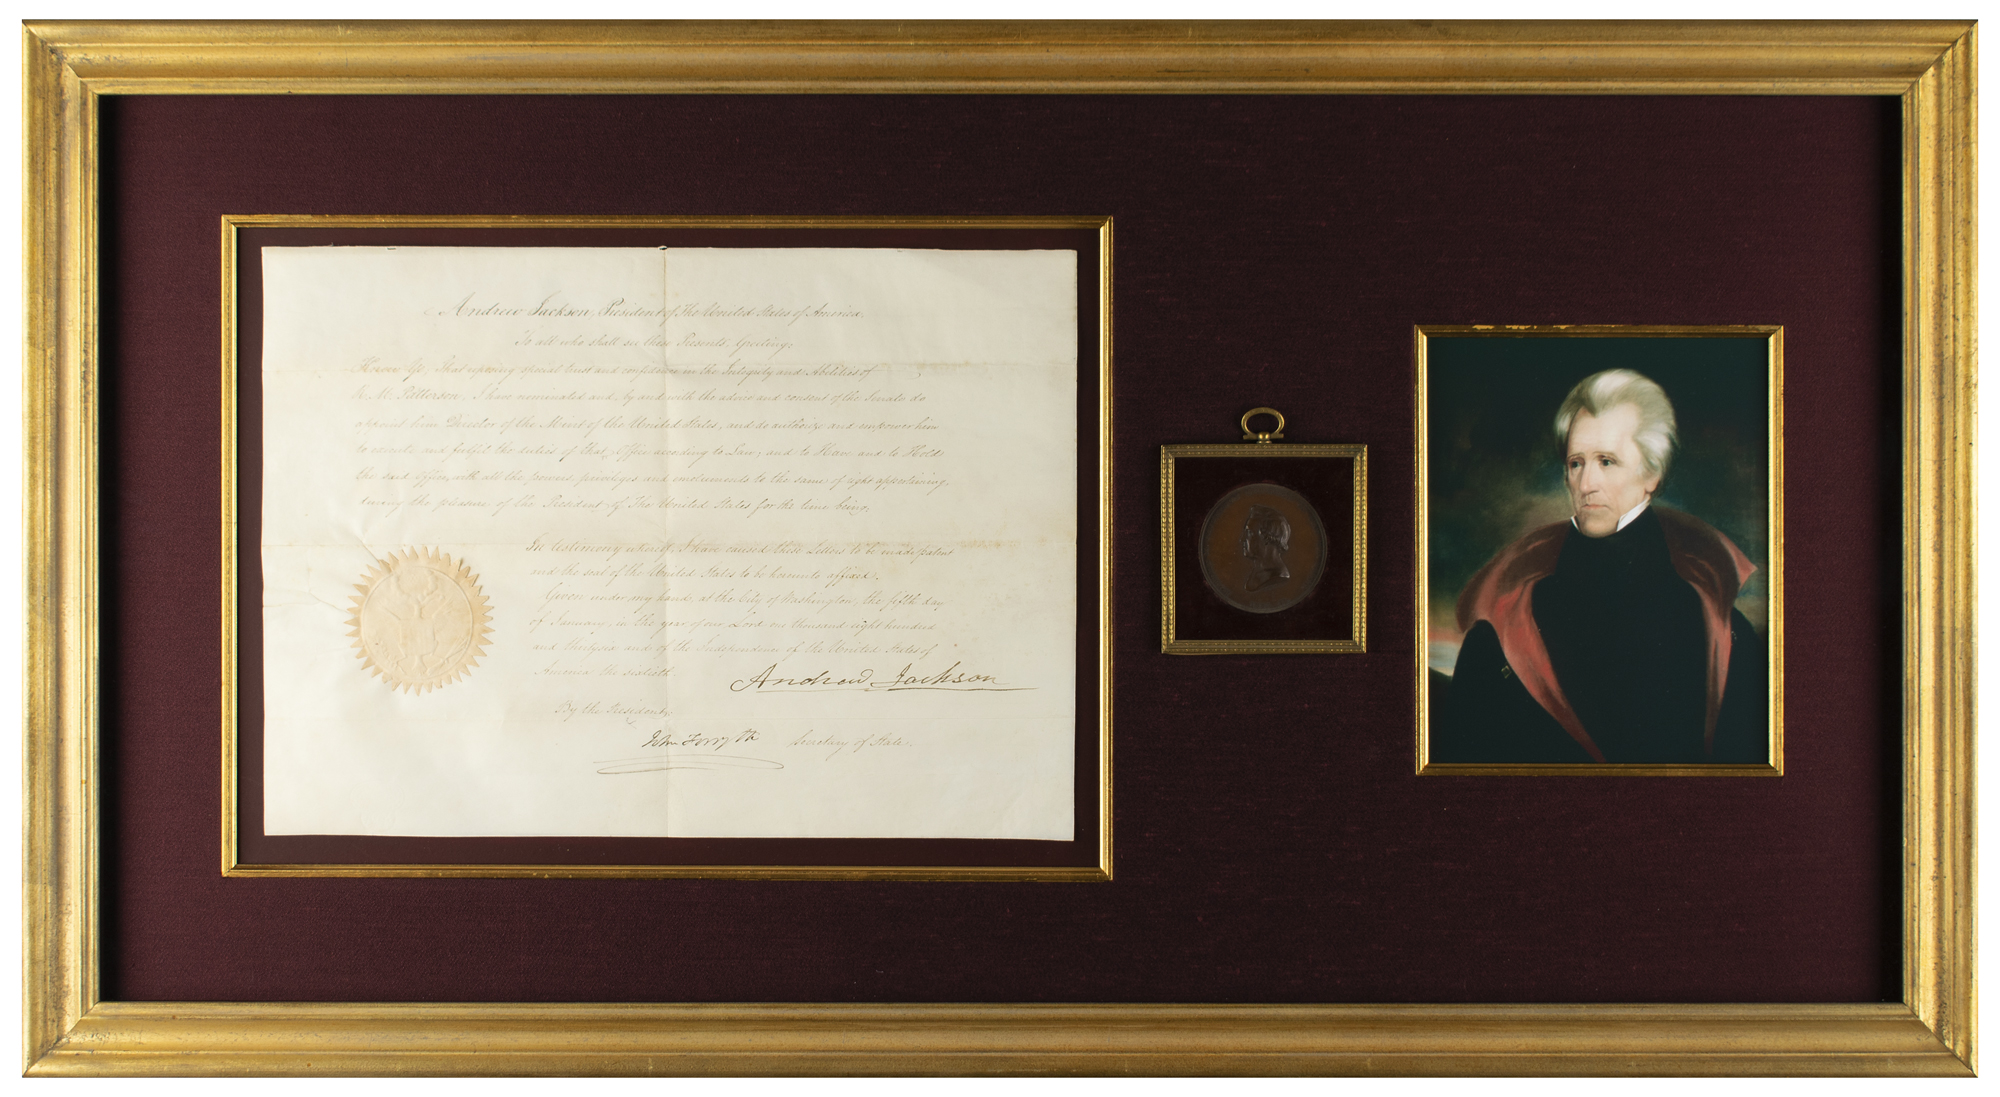 Andrew Jackson, President of The United States of America,
To all who shall see these Presents, Greeting:
Know Ye, That reposing special trust and confidence in the Integrity and Abilities of
R. M. Patterson, I have nominated and by and with the advice and consent of the Senate do
appoint him Director of the Mint of the United States, and do authorize and empower him
to execute and fulfil the duties of that Office according to Law; and to Have and to Hold
the said Office, with all the powers, privileges and emoluments to the same of right appertaining
during the pleasure of the President of The United States for the time being.
In testimony whereof, I have caused these Letters to be made patent
and the seal of the United States to be hereunto affixed.
Given under my hand, at the City of Washington, the fifth day
of January, in the year of our Lord one thousand eight hundred
and thirty six and of the Independence of the United States of
America the sixtieth.
Andrew Jackson
By the President,
John Forsyth Secretary of State.